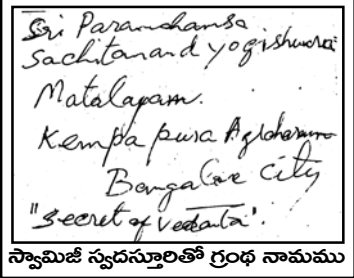 Sri Paramahamsa
Sachitanand yogishwara
Matalayam.
Kempapura Agraharam
Bangalore City
"Secret of Vedanta".
స్వామిజీ స్వదస్తూరితో గ్రంథ నామము